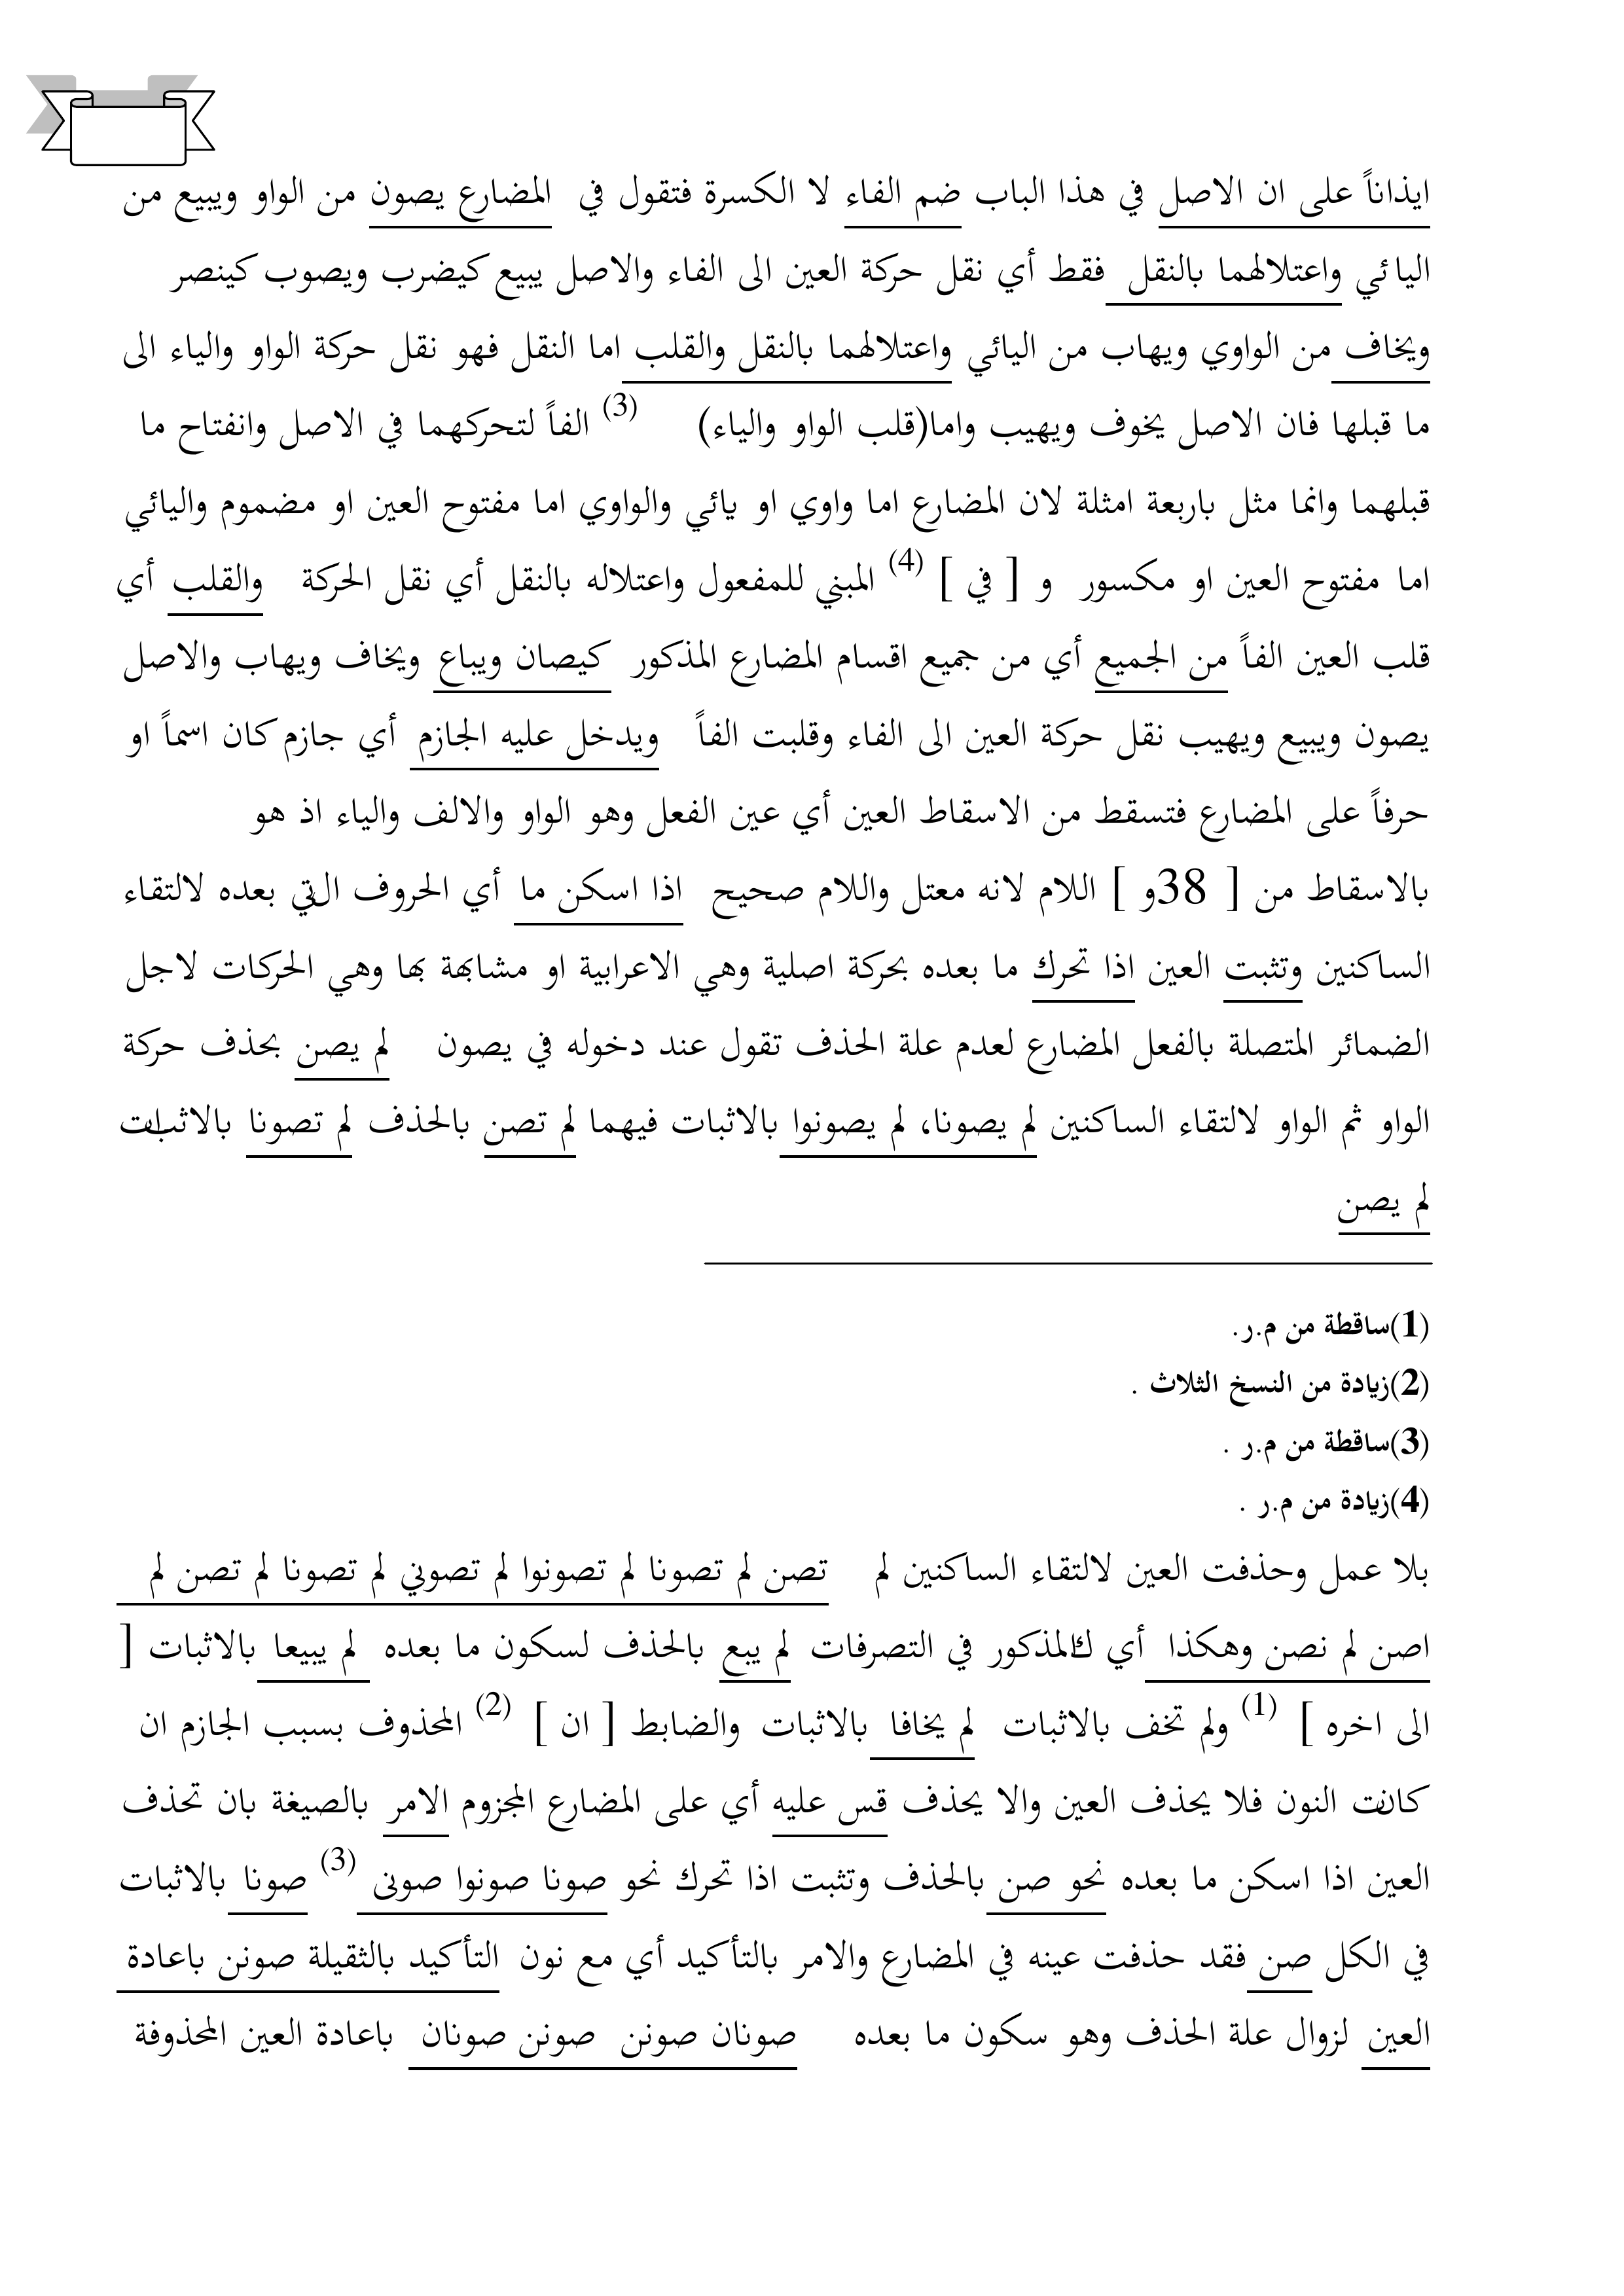 ايذاناً على ان الاصل في هذا الباب ضم الفاء لا الكسرة فتقول في المضارع يصون من الواو ويبيع من
اليائي واعتلالهما بالنقل فقط أي نقل حركة العين الى الفاء والاصل يبيع كيضرب ويصوب كينصر
ويخاف من الواوي ويهاب من اليائي واعتلالهما بالنقل والقلب اما النقل فهو نقل حركة الواو والياء الى
ما قبلها فان الاصل يخوف ويهيب واما(قلب الواو والياء) (3) الفاً لتحركهما في الاصل وانفتاح ما
قبلهما وانما مثل باربعة امثلة لان المضارع اما واوي او يائي والواوي اما مفتوح العين او مضموم واليائي
اما مفتوح العين او مكسور و [ في ] (4) المبني للمفعول واعتلاله بالنقل أي نقل الحركة والقلب أي
قلب العين الفاً من الجميع أي من جميع اقسام المضارع المذكور كيصان ويباع ويخاف ويهاب والاصل
يصون ويبيع ويهيب نقل حركة العين الى الفاء وقلبت الفاً ويدخل عليه الجازم أي جازم كان اسماً او
حرفاً على المضارع فتسقط من الاسقاط العين أي عين الفعل وهو الواو والالف والياء اذ هو
بالاسقاط من [ 38و ] اللام لانه معتل واللام صحيح اذا اسكن ما أي الحروف التي بعده لالتقاء
الساكنين وتثبت العين اذا تحرك ما بعده بحركة اصلية وهي الاعرابية او مشابهة بها وهي الحركات لاجل
الضمائر المتصلة بالفعل المضارع لعدم علة الحذف تقول عند دخوله في يصون لم يصن بحذف حركة
الواو ثم الواو لالتقاء الساكنين لم يصونا، لم يصونوا بالاثبات فيهما لم تصن بالحذف لم تصونا بالاثبات
لم يصن
(1)ساقطة من م.ر.
(2)زيادة من النسخ الثلاث .
(3)ساقطة من م.ر .
(4)زيادة من م.ر .
بلا عمل وحذفت العين لالتقاء الساكنين لم تصن لم تصونا لم تصونوا لم تصوني لم تصونا لم تصن لم
اصن لم نصن وهكذا أي كالمذكور في التصرفات لم يبع بالحذف لسكون ما بعده لم يبيعا بالاثبات [
الى اخره ] (1) ولم تخف بالاثبات لم يخافا بالاثبات والضابط [ ان ] (2) المحذوف بسبب الجازم ان
كانت النون فلا يحذف العين والا يحذف قس عليه أي على المضارع المجزوم الامر بالصيغة بان تحذف
العين اذا اسكن ما بعده نحو صن بالحذف وتثبت اذا تحرك نحو صونا صونوا صونى (3) صونا بالاثبات
في الكل صن فقد حذفت عينه في المضارع والامر بالتأكيد أي مع نون التأكيد بالثقيلة صونن باعادة
العين لزوال علة الحذف وهو سكون ما بعده صونان صونن صونن صونان باعادة العين المحذوفة